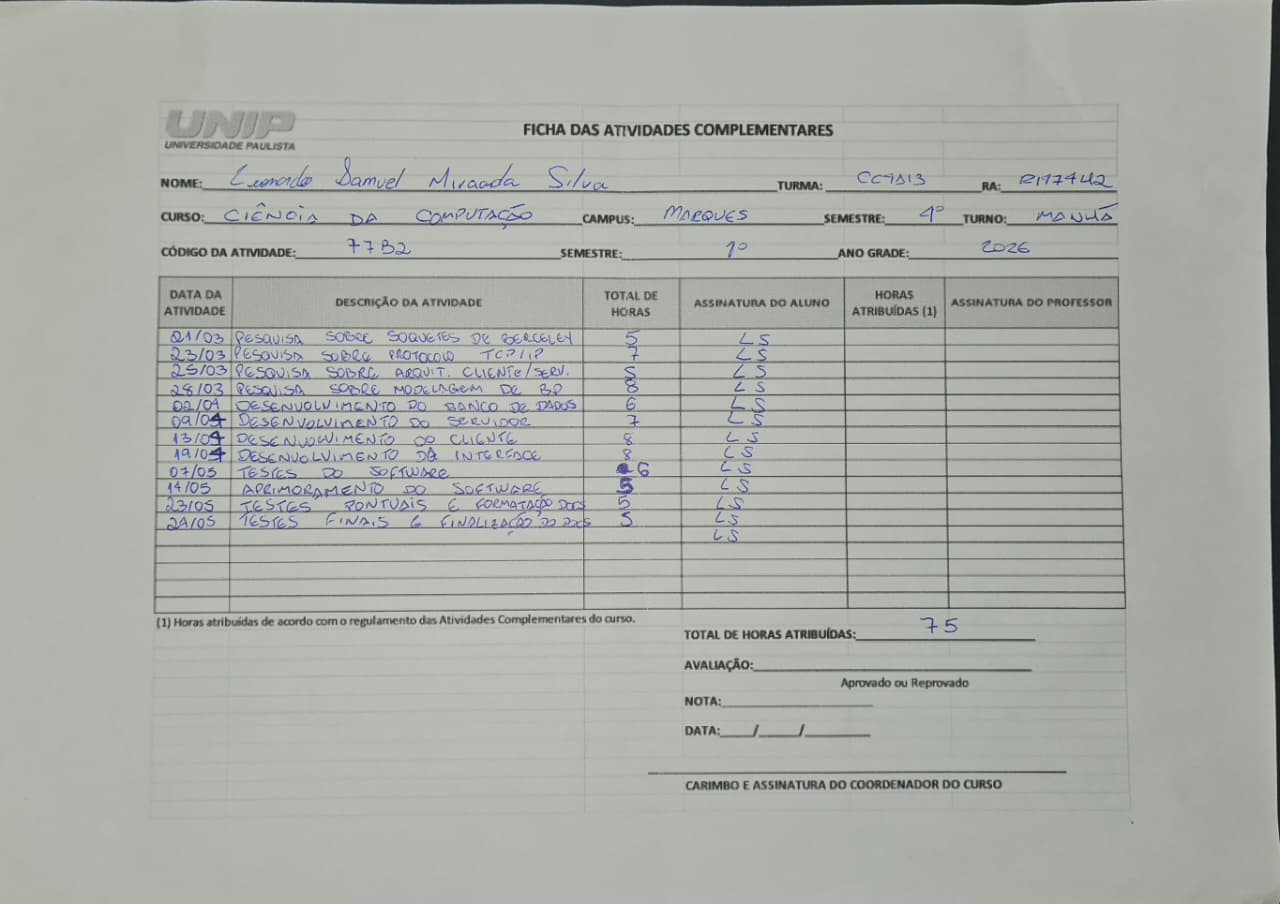 UNIP
UNIVERSIDADE PAULISTA
FICHA DAS ATIVIDADES COMPLEMENTARES
NOME: Leonardo Samuel Miranda Silva TURMA: RA:
CURSO: CIÊNCIA DA COMPUTAÇÃO CAMPUS: MARQUES SEMESTRE: 4º TURNO: MANHÃ
CÓDIGO DA ATIVIDADE: 77B2 SEMESTRE: 1º ANO GRADE: 2026
DATA DA ATIVIDADE DESCRIÇÃO DA ATIVIDADE TOTAL DE HORAS ASSINATURA DO ALUNO HORAS ATRIBUÍDAS (1) ASSINATURA DO PROFESSOR
21/03 PESQUISA SOBRE SOQUETES DE BERCELEY 5 LS
23/03 PESQUISA SOBRE PROTOCOLO TCP/IP 7 LS
25/03 PESQUISA SOBRE ARQUIT. CLIENTE/SERV. 5 LS
28/03 PESQUISA SOBRE MODELAGEM DE BD 8 LS
02/04 DESENVOLVIMENTO DO BANCO DE DADOS 6 LS
09/04 DESENVOLVIMENTO DO SERVIDOR 7 LS
13/04 DESENVOLVIMENTO DO CLIENTE 8 LS
19/04 DESENVOLVIMENTO DA INTERFACE 8 LS
07/05 TESTES DO SOFTWARE 6 LS
14/05 APRIMORAMENTO DO SOFTWARE 5 LS
23/05 TESTES PONTUAIS E FORMATAÇÃO DOCS 5 LS
24/05 TESTES FINAIS E FINALIZAÇÃO DO DOCS 5 LS
LS
(1) Horas atribuídas de acordo com o regulamento das Atividades Complementares do curso.
TOTAL DE HORAS ATRIBUÍDAS: 75
AVALIAÇÃO:
Aprovado ou Reprovado
NOTA:
DATA: / /
CARIMBO E ASSINATURA DO COORDENADOR DO CURSO